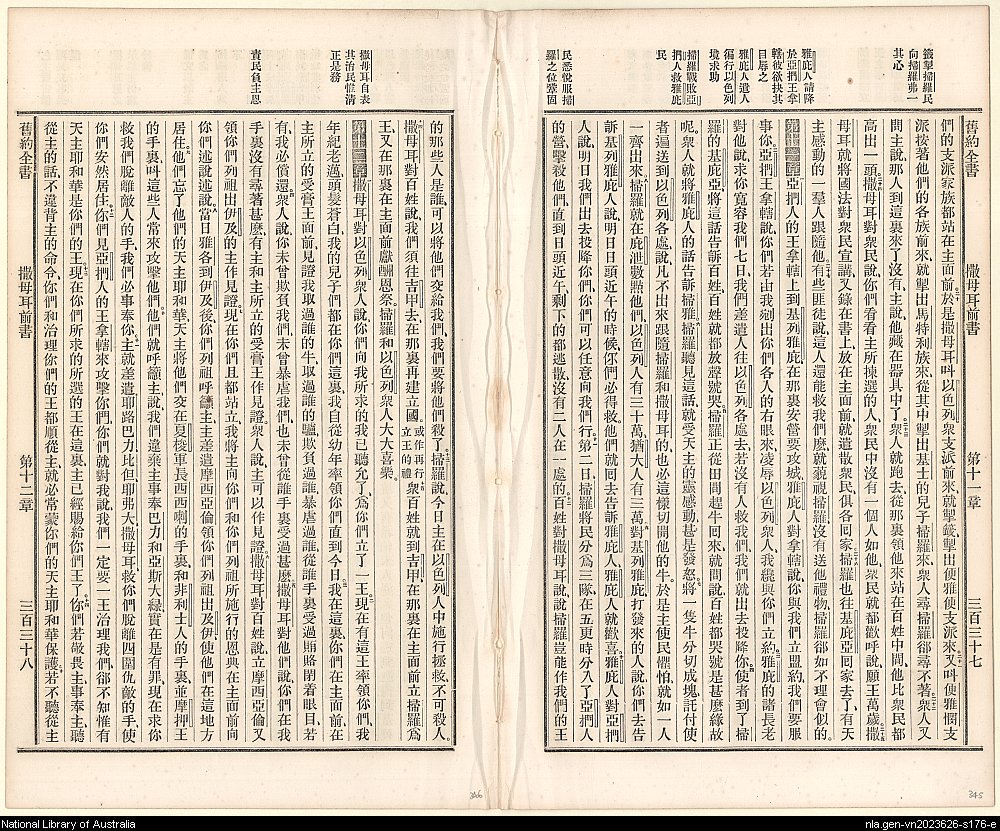 籤掣掃羅民
向掃羅弗一
其心
雅庇人請降
於亞捫王拿
轄彼欲抉其
目辱之
雅庇人遣人
徧行以色列
境求助
掃羅戰敗亞
捫人救雅庇
民
民悉悅服掃
羅之位鞏固
舊約全書
撒母耳前書
第十一章
三百三十七
們的支派家族都站在主面前於是撒母耳叫以色列衆支派前來就掣籤掣出便雅憫支派來又叫便雅憫支
派按著他們的各族前來就掣出馬特利族來從其中掣出基士的兒子掃羅來衆人尋掃羅卻尋不著衆人又
問主說那人到這裏來了沒有主說他藏在器具中了衆人就跑去從那裏領他來站在百姓中間他比衆民都
高出一頭撒母耳對衆民說你們看看主所揀選的人衆民中沒有一個人如他衆民就都歡呼說願王萬歲撒
母耳就將國法對衆民宣講又錄在書上放在主面前就遣散衆民俱各囘家掃羅也往基庇亞囘家去了有天
主感動的一羣人跟隨他有些匪徒說這人還能救我們麼就藐視掃羅沒有送他禮物掃羅卻如不理會似的
第十一章亞捫人的王拿轄上到基列雅庇在那裏安營要攻城雅庇人對拿轄說你與我們立盟約我們要服
事你亞捫王拿轄說你們若由我剜出你們各人的右眼來凌辱以色列衆人我纔與你們立約雅庇的諸長老
對他說求你寬容我們七日我們差遣人往以色列各處去若沒有人救我們我們就出去投降你使者到了掃
羅的基庇亞將這話告訴百姓百姓就都放聲號哭掃羅正從田間趕牛囘來就問說百姓都哭號是甚麼緣故
呢衆人就將雅庇人的話告訴掃羅掃羅聽見這話就受天主的靈感動甚是發怒將一隻牛分切成塊託付使
者遍送到以色列各處說凡不出來跟隨掃羅和撒母耳的也必這樣切開他的牛於是主使民懼怕就如一人
一齊出來掃羅就在庇泄數點他們以色列人有三十萬猶大人有三萬對基列雅庇打發來的人說你們去告
訴基列雅庇人說明日日頭近午的時候你們必得救他們就囘去告訴雅庇人雅庇人就歡喜雅庇人對亞捫
人說明日我們出去投降你們你們可以任意向我們行第二日掃羅將民分爲三隊在五更時分入了亞捫人
的營擊殺他們直到日頭近午剩下的都逃散沒有二人在一處的百姓對撒母耳說說掃羅豈能作我們的王
撒母耳自表
其治民惟清
正是務
責民負主恩
的那些人是誰可以將他們交給我們我們要將他們殺了掃羅說今日主在以色列人中施行拯救不可殺人
撒母耳對百姓說我們須往吉甲去在那裏再建立國或作再行立王的禮衆百姓就到吉甲在那裏在主面前立掃羅爲
王又在那裏在主面前獻酬恩祭掃羅和以色列衆人大大喜樂
第十二章撒母耳對以色列衆人說你們向我所求的我已聽允了爲你們立了一王現在有這王率領你們我
年紀老邁頭髮蒼白我的兒子們都在你們這裏我自從幼年率領你們直到今日我在這裏你們在主面前在
主所立的受膏王面前見證我取過誰的牛取過誰的驢欺負過誰暴虐過誰從誰手裏受過賄賂閉着眼目若
有我必償還衆人說你未曾欺負我們未曾暴虐我們也未曾從誰手裏受過甚麼撒母耳對他們說你們在我
手裏沒有尋著甚麼有主和主所立的受膏王作見證衆人說主可以作見證撒母耳對百姓說立摩西亞倫又
領你們列祖出伊及的主作見證現在你們且都站立我將主向你們和你們列祖所施行的恩典在主面前向
你們述說述說當日雅各到伊及後你們列祖呼籲主主差遣摩西亞倫領你們列祖出伊及使他們在這地方
居住他們忘了他們的天主耶和華天主將他們交在夏梭軍長西西喇的手裏和非利士人的手裏並摩押王
的手裏叫這些人常來攻擊他們他們就呼籲主說我們違棄主事奉巴力和亞斯大綠實在是有罪現在求你
救我們脫離敵人的手我們必事奉你主就差遣耶路巴力比但耶弗大撒母耳救你們脫離四圍仇敵的手使
你們安然居住你們見亞捫人的王拿轄來攻擊你們你們就對我說我們一定要一王治理我們卻不知惟有
天主耶和華是你們的王現在你們所求的所選的王在這裏主已經賜給你們王了你們若敬畏主事奉主聽
從主的話不違背主的命令你們和治理你們的王都順從主就必常蒙你們的天主耶和華保護若不聽從主
舊約全書
撒母耳前書
第十二章
三百三十八
346
345
National Library of Australia
nla.gen-vn2023626-s176-e